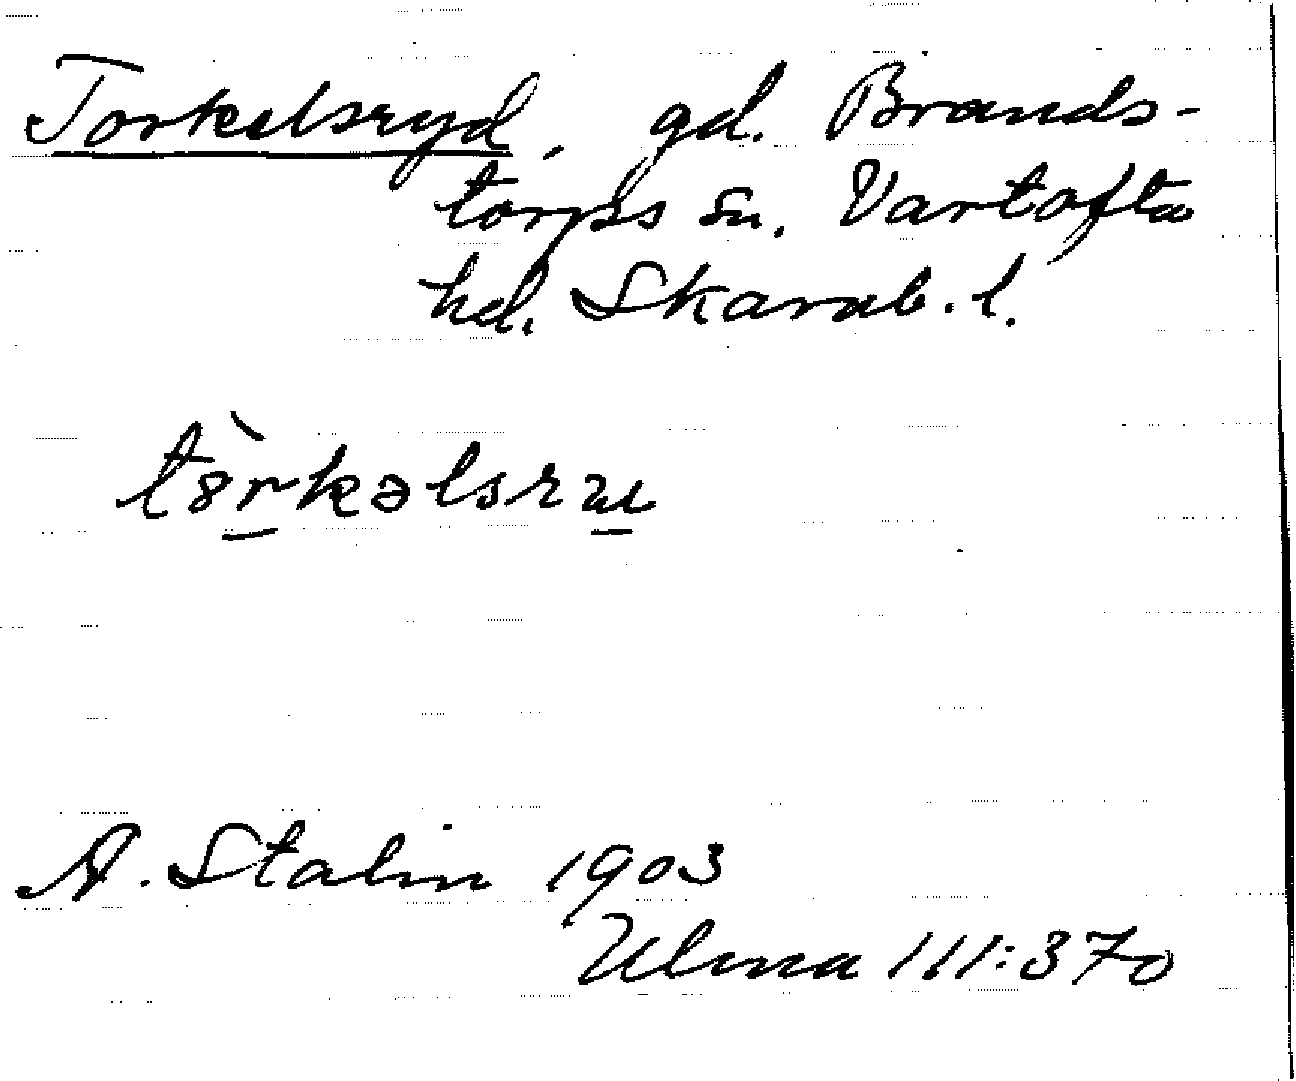 Torkelsryd, gd. Brands-
torps sn. Vartofta
hd. Skarab. l.
tòrkəlsrɯ
A. Stalin 1903
Ulma 111:370